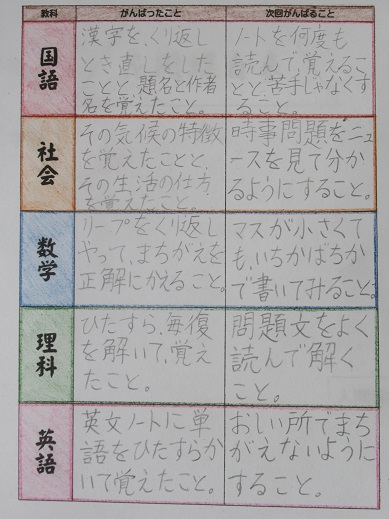 教科 がんばったこと 次回がんばること
国語
漢字を、くり返し
とき直しをした
ことと、題名と作者
名を覚えたこと。
ノートを何度も
読んで、覚えるこ
とと、苦手じゃなくす
ること。
社会
その気候の特徴
を覚えたことと、
その生活の仕方
を覚えたこと。
時事問題を、ニュ
ースを見て分か
るようにすること。
数学
リープをくり返し
やって、まちがえを
正解にかえること。
マスが小さくて
も、いちかばちか
で書いてみること。
理科
ひたすら、毎復
を解いて、覚え
たこと。
問題文をよく
読んで解く
こと。
英語
英文ノートに単
語をひたすらか
いて覚えたこと。
おしい所でまち
がえないように
すること。